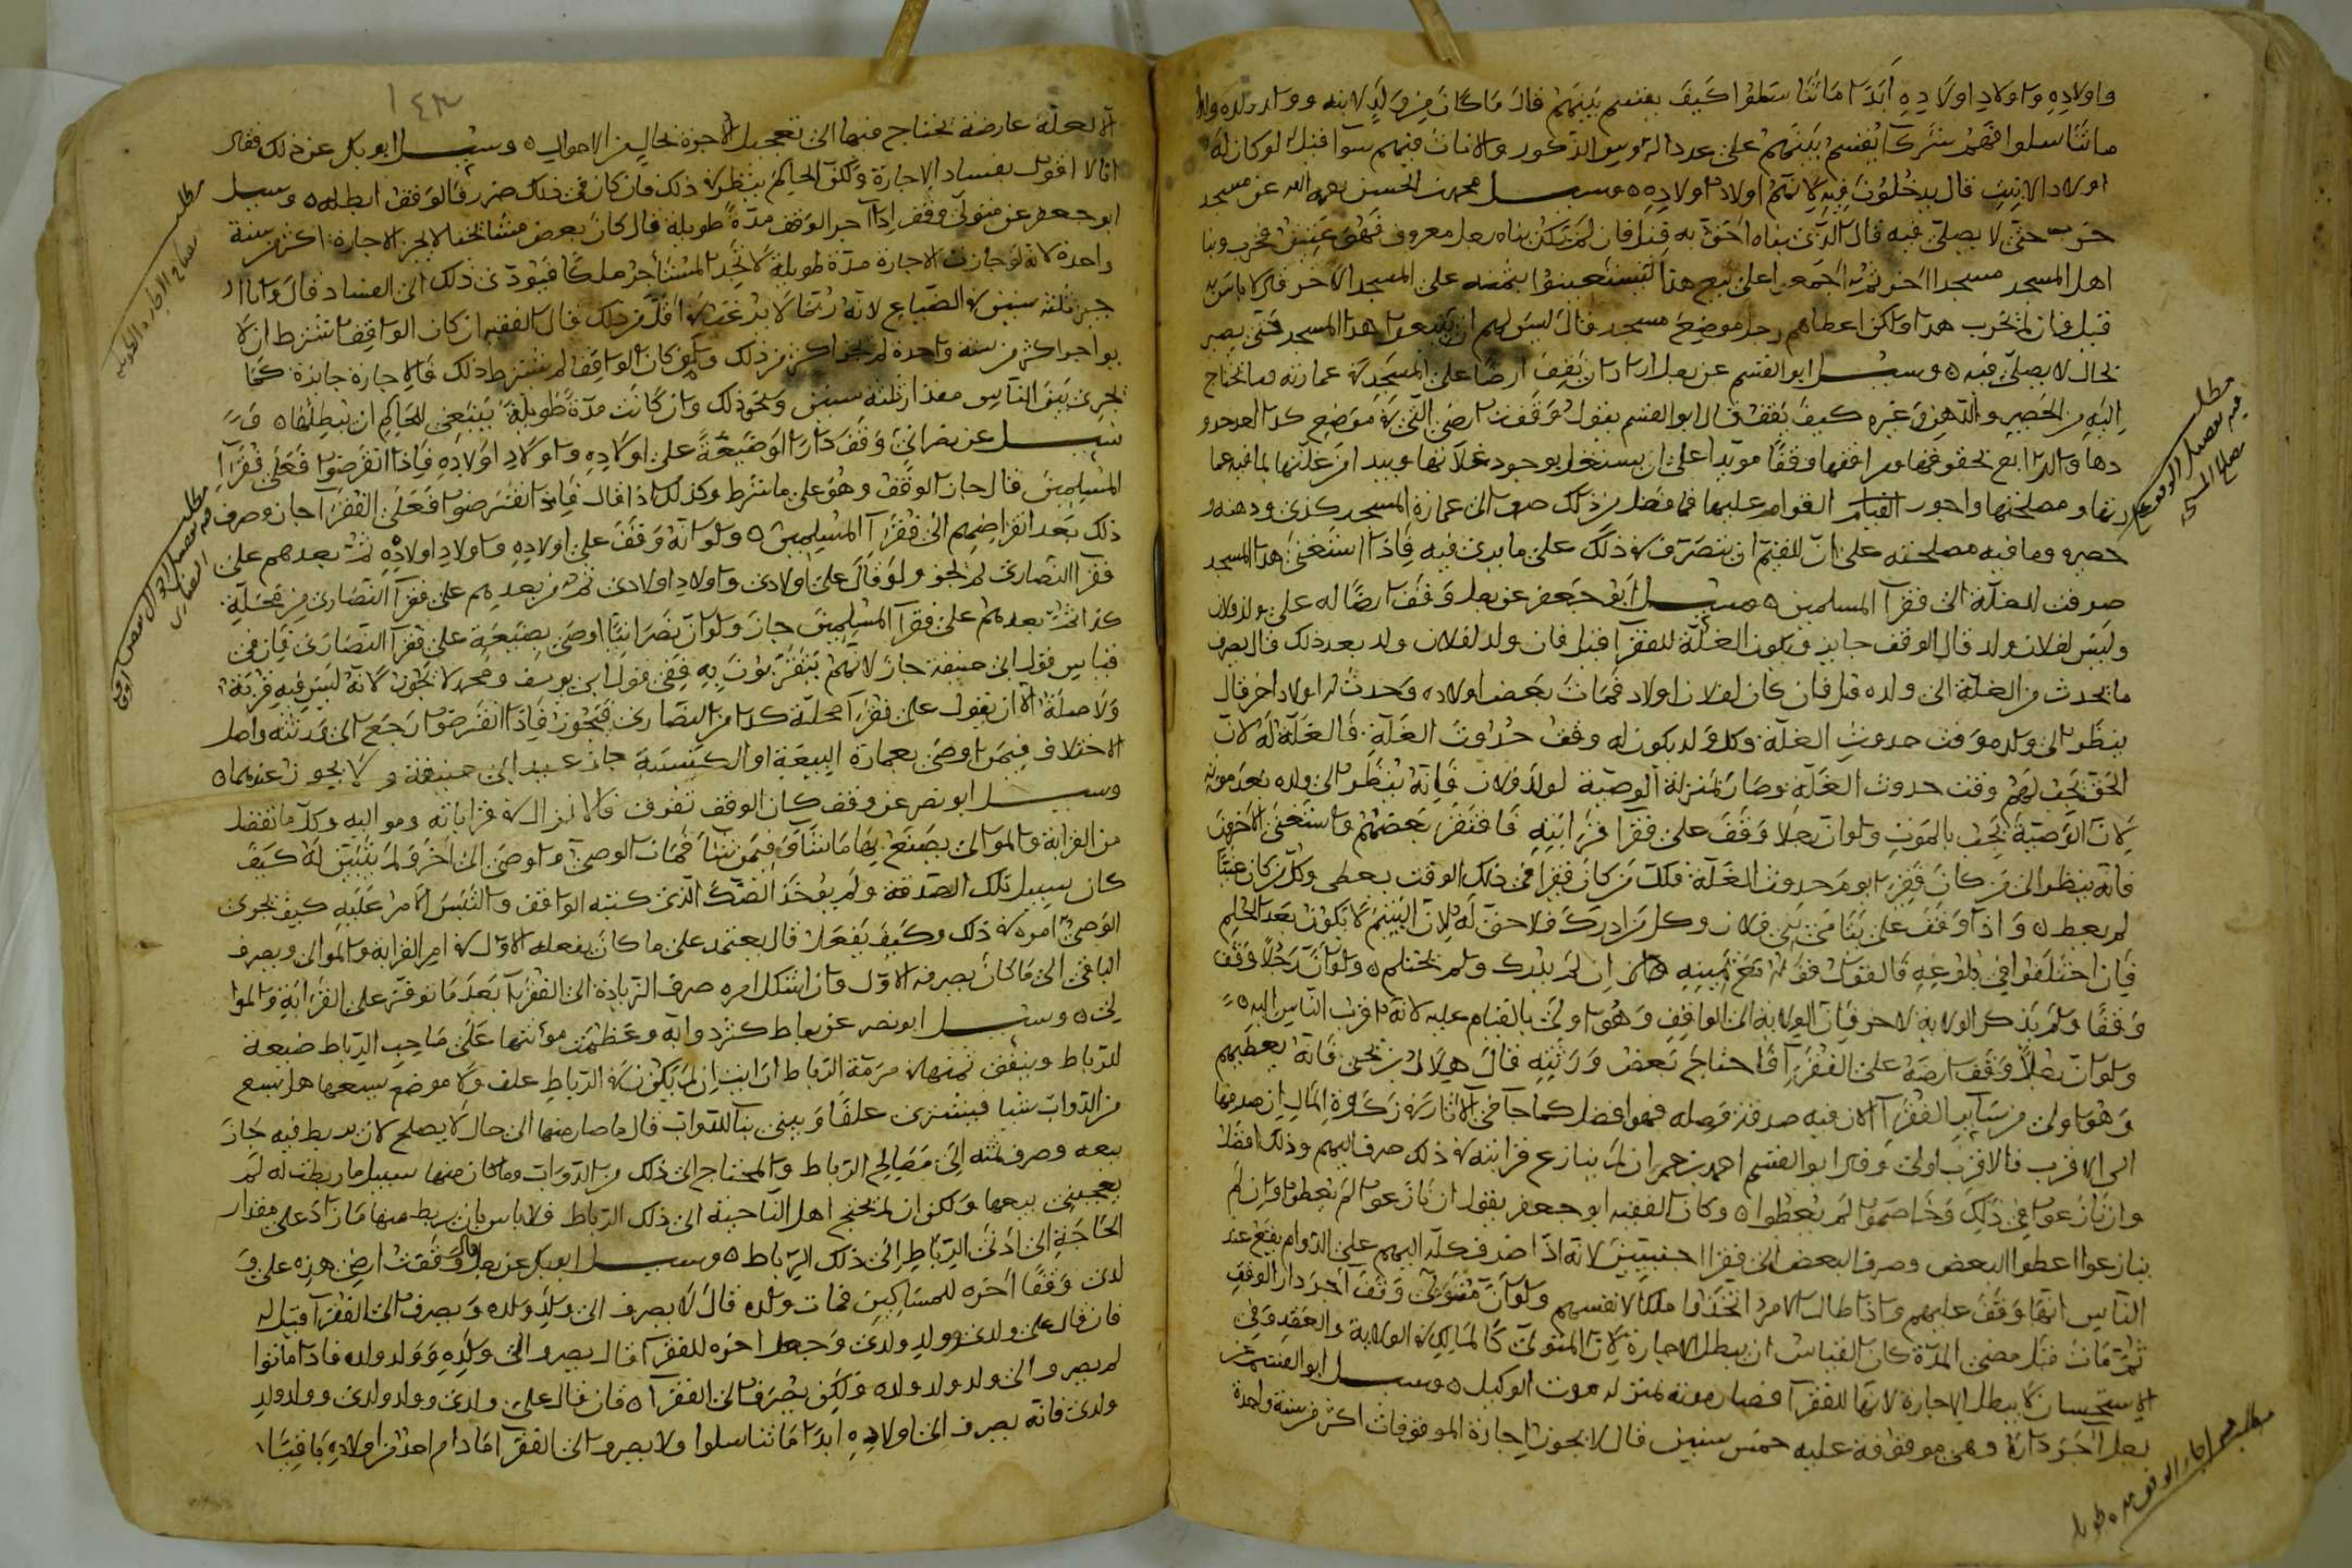 واولاده واولاد اولاده ابدا ما تناسلوا كيف يقسم بينهم قال ما كان من ولد لابنه وولد ولده
ما تناسلوا فهم شركا يقسم بينهم على عدد الروس الذكور والاناث فيهم سوا قيل لو كان له
اولاد الابنين قال يدخلون فيه لانهم اولاد اولاده وسيل محمد بن الحسن رحمه الله عن مسجد
خرب حتى لا يصلى فيه قال الذي بناه احق به قيل فان لم يكن بناه رجل معروف
اهل المسجد مسجدا اخر ثم اجمعوا على بيع هذا ليستعينوا بثمنه على المسجد الاخر قال لا باس به
قيل فان لم يخرب هذا ولكن اعطاهم رجل موضع مسجد قال ليس لهم ان يبيعوا هذا المسجد حتى يصير
بحال لا يصلى فيه وسيل ابو القسم عن رجل اراد ان يقف ارضا على المسجد في عمارته وما يحتاج
اليه من الحصير والدهن وغيره كيف يقف قال ابو القسم يقول وقفت ارضي التي في موضع كذا
بحقوقها ومرافقها وقفا موبدا على ان يستغل بوجوه غلاتها ويبدا من غلتها بما فيه
ومصلحتها واجور القوام عليها فما فضل من ذلك صرف الى عمارة المسجد كذى ودهنه
حصيره وما فيه مصلحته على ان للقيم ان يتصرف في ذلك على ما يرى فيه فاذا استغنى هذا المسجد
صرفت الغلة الى فقرآ المسلمين وسيل ابو جعفر عن رجل وقف ارضا له على ولد فلان
وليس لفلان ولد قال الوقف جايز وتكون الغلة للفقرآ قيل فان ولد لفلان ولد بعد ذلك قال يصرف
ما يحدث من الغلة الى ولده قيل فان كان لفلان اولاد فمات بعض اولاده وحدث له اولاد اخر قال
ينظر الى ولده وقت حدوث الغلة وكل ولد يكون له وقت حدوث الغلة فالغلة له لان
الحق يجب لهم وقت حدوث الغلة وصار بمنزلة الوصية لولد فلان فانه ينظر الى ولده بعد موته
لان الوصية تجب بالموت ولو ان رجلا وقف على فقرآ قرابته فافتقر بعضهم واستغنى الاخرون
فانه ينظر الى من كان فقيرا يوم حدوث الغلة فكل من كان فقيرا في ذلك الوقت يعطى وكل من كان غنيا
لم يعط واذا وقف على يتامى بني فلان وكل من ادرك فلا حق له لان اليتيم لا يكون بعد الحلم
فان اختلفوا في بلوغه فالقول قوله مع يمينه انه لم يدرك ولم يحتلم ولو ان رجلا وقف
وقفا ولم يذكر الولاية لاحد فان الولاية الى الواقف وهو اولى بالقيام عليه لانه اقرب الناس اليه
ولو ان رجلا وقف ارضه على الفقرآ فاحتاج بعض ورثته قال هلال بن يحيى فانه يعطيهم
وهو اولى من سآير الفقرآ لان فيه صدقة وصله فهو افضل كما جآ في الآثار في زكاة المال ان صرفها
الى الاقرب فالاقرب اولى وقال ابو القسم احمد بن حم ان لم ينازع قرابته في ذلك صرف اليهم وذلك افضل
وان نازعوا في ذلك وخاصموا لم يعطوا وكان الفقيه ابو جعفر يقول ان نازعوا لم يعطوا وان لم
ينازعوا اعطوا البعض وصرف البعض الى فقرا اجنبيين لانه اذا صرف كله اليهم على الدوام يقع عند
الناس انها وقف عليهم واذا طال الامر اتخذوا ملكا لانفسهم ولو ان متولى وقف آجر دار الوقف
ثم مات قبل مضى المدة كان القياس ان يبطل الاجارة لان المتولى كالمالك في الولاية والعقد وفي
الاستحسان لا يبطل الاجارة لانها للفقرآ فصار موته بمنزلة موت الوكيل وسيل ابو القسم عن
رجل آجر دارة وهي موقوفة عليه خمس سنين قال لا يجوز اجارة الموقوفات اكثر من سنة واحدة
مطلب
فيه
مطلب
اجارة الوقف مدة طويلة
١٤٣
الا لعلة عارضة يحتاج فيها الى تعجيل الاجرة بحال من الاحوال وسيل ابو بكر عن ذلك فقال
انا لا اقول بفساد الاجارة ولكن الحاكم ينظر في ذلك فان كان في ذلك ضرر فالوقف ابطله وسيل
ابو جعفر عن متولى وقف اذا آجر الوقف مدة طويلة قال كان بعض مشايخنا لا يجيز الاجارة اكثر من سنة
واحدة لانه لو جازت الاجارة مدة طويلة لاتخذ المستاجر ملكا فيودى ذلك الى الفساد قال واما انا
ثلثة سنين في الضياع لانه ربما لا يرغب في اقل من ذلك قال الفقيه ان كان الواقف شرط ان لا
يواجر اكثر من سنة واحدة لم يجز اكثر من ذلك ولو كان الواقف لم يشترط ذلك فالاجارة جايزة كما
يجرى بين الناس مقدار ثلثة سنين ونحو ذلك وان كانت مدة طويلة ينبغي للحاكم ان يبطلها و
سيل عن نصراني وقف دارا او ضيعة على اولاده واولاد اولاده فاذا انقرضوا فعلى فقرآ
المسلمين قال جاز الوقف وهو على ما شرط وكذلك اذا قال فاذا انقرضوا فعلى الفقرآ جاز وصرف
ذلك بعد انقراضهم الى فقرآ المسلمين ولو انه وقف على اولاده واولاد اولاده ثم بعدهم على
فقرآ النصارى لم يجز ولو قال على اولادى واولاد اولادى ثم من بعدهم على فقرآ النصارى من محلة
كذا ثم بعدهم على فقرآ المسلمين جاز ولو ان نصرانيا اوصى بضيعة على فقرآ النصارى فان في
قياس قول ابى حنيفة جاز لانهم يتقربون به وفي قول ابى يوسف ومحمد لا يجوز لانه ليس فيه قربة
ولا صلة الا ان يقول على فقرآ محلة كذا من النصارى فيجوز فاذا انقرضوا رجع الى ورثته واصل
الاختلاف فيمن اوصى بعمارة البيعة او الكنيسة جاز عند ابى حنيفة ولا يجوز عندهما
وسيل ابو نصر عن وقف كان الوقف تفرق في قراباته ومواليه وكل ما تفضل
من القرابة والموالى يصنع بها ما شآ فيمن شآ فمات الوصي واوصى الى اخر ولم يتبين له كيف
كان سبيل تلك الصدقة ولم يوخذ الصك الذى كتبه الواقف والتبس الامر عليه كيف يجرى
الوصي امره في ذلك وكيف يفعل قال يعتمد على ما كان يفعله الاول في امر القرابة والموالى ويصرف
الباقى الى ما كان يصرفه الاول وان اشكل امره صرف الزيادة الى الفقرآ بعد ما توفر على القرابة والموا
لى وسيل ابو نصر عن رباط كثر دوابه وعظمت موانتها على صاحب الرباط ضيعة
للرباط وينفق ثمنها في مرمة الرباط ارايت ان لم يكن في الرباط علف ولا موضع يسعها هل يبيع
من الدواب شيا فيشترى علفا ويبنى بيتا للدواب قال ما صار منها الى حال لا يصلح لان يربط فيه جاز
بيعه وصرف ثمنه الى مصالح الرباط والمحتاج الى ذلك من الدواب وما كان منها سبيل ما ربطت له لم
يعجبني بيعها ولكن ان لم يحتج اهل الناحية الى ذلك الرباط فلا باس بان يربط منها ما زاد على مقدار
الحاجة الى ادنى الرباط الى ذلك الرباط وسيل ابو بكر عن رجل قال وقفت ارضى هذه على و
لدى وقفا اخره للمساكين فمات ولده قال لا يصرف الى ولد ولده ويصرف الى الفقرآ قيل له
فان قال على ولدى وولد ولدى وجعل اخره للفقرآ قال يصرف الى ولده وولد ولده فاذا ماتوا
لم يصرف الى ولد ولد ولده ولكن يصرف الى الفقرآ فان قال على ولدى وولد ولدى وولد ولد
ولدى فانه يصرف الى اولاده ابدا ما تناسلوا ولا يصرف الى الفقرآ ما دام احد من اولاده باقيا
مطلب
الاجارة الطويلة
مطلب
النصارى